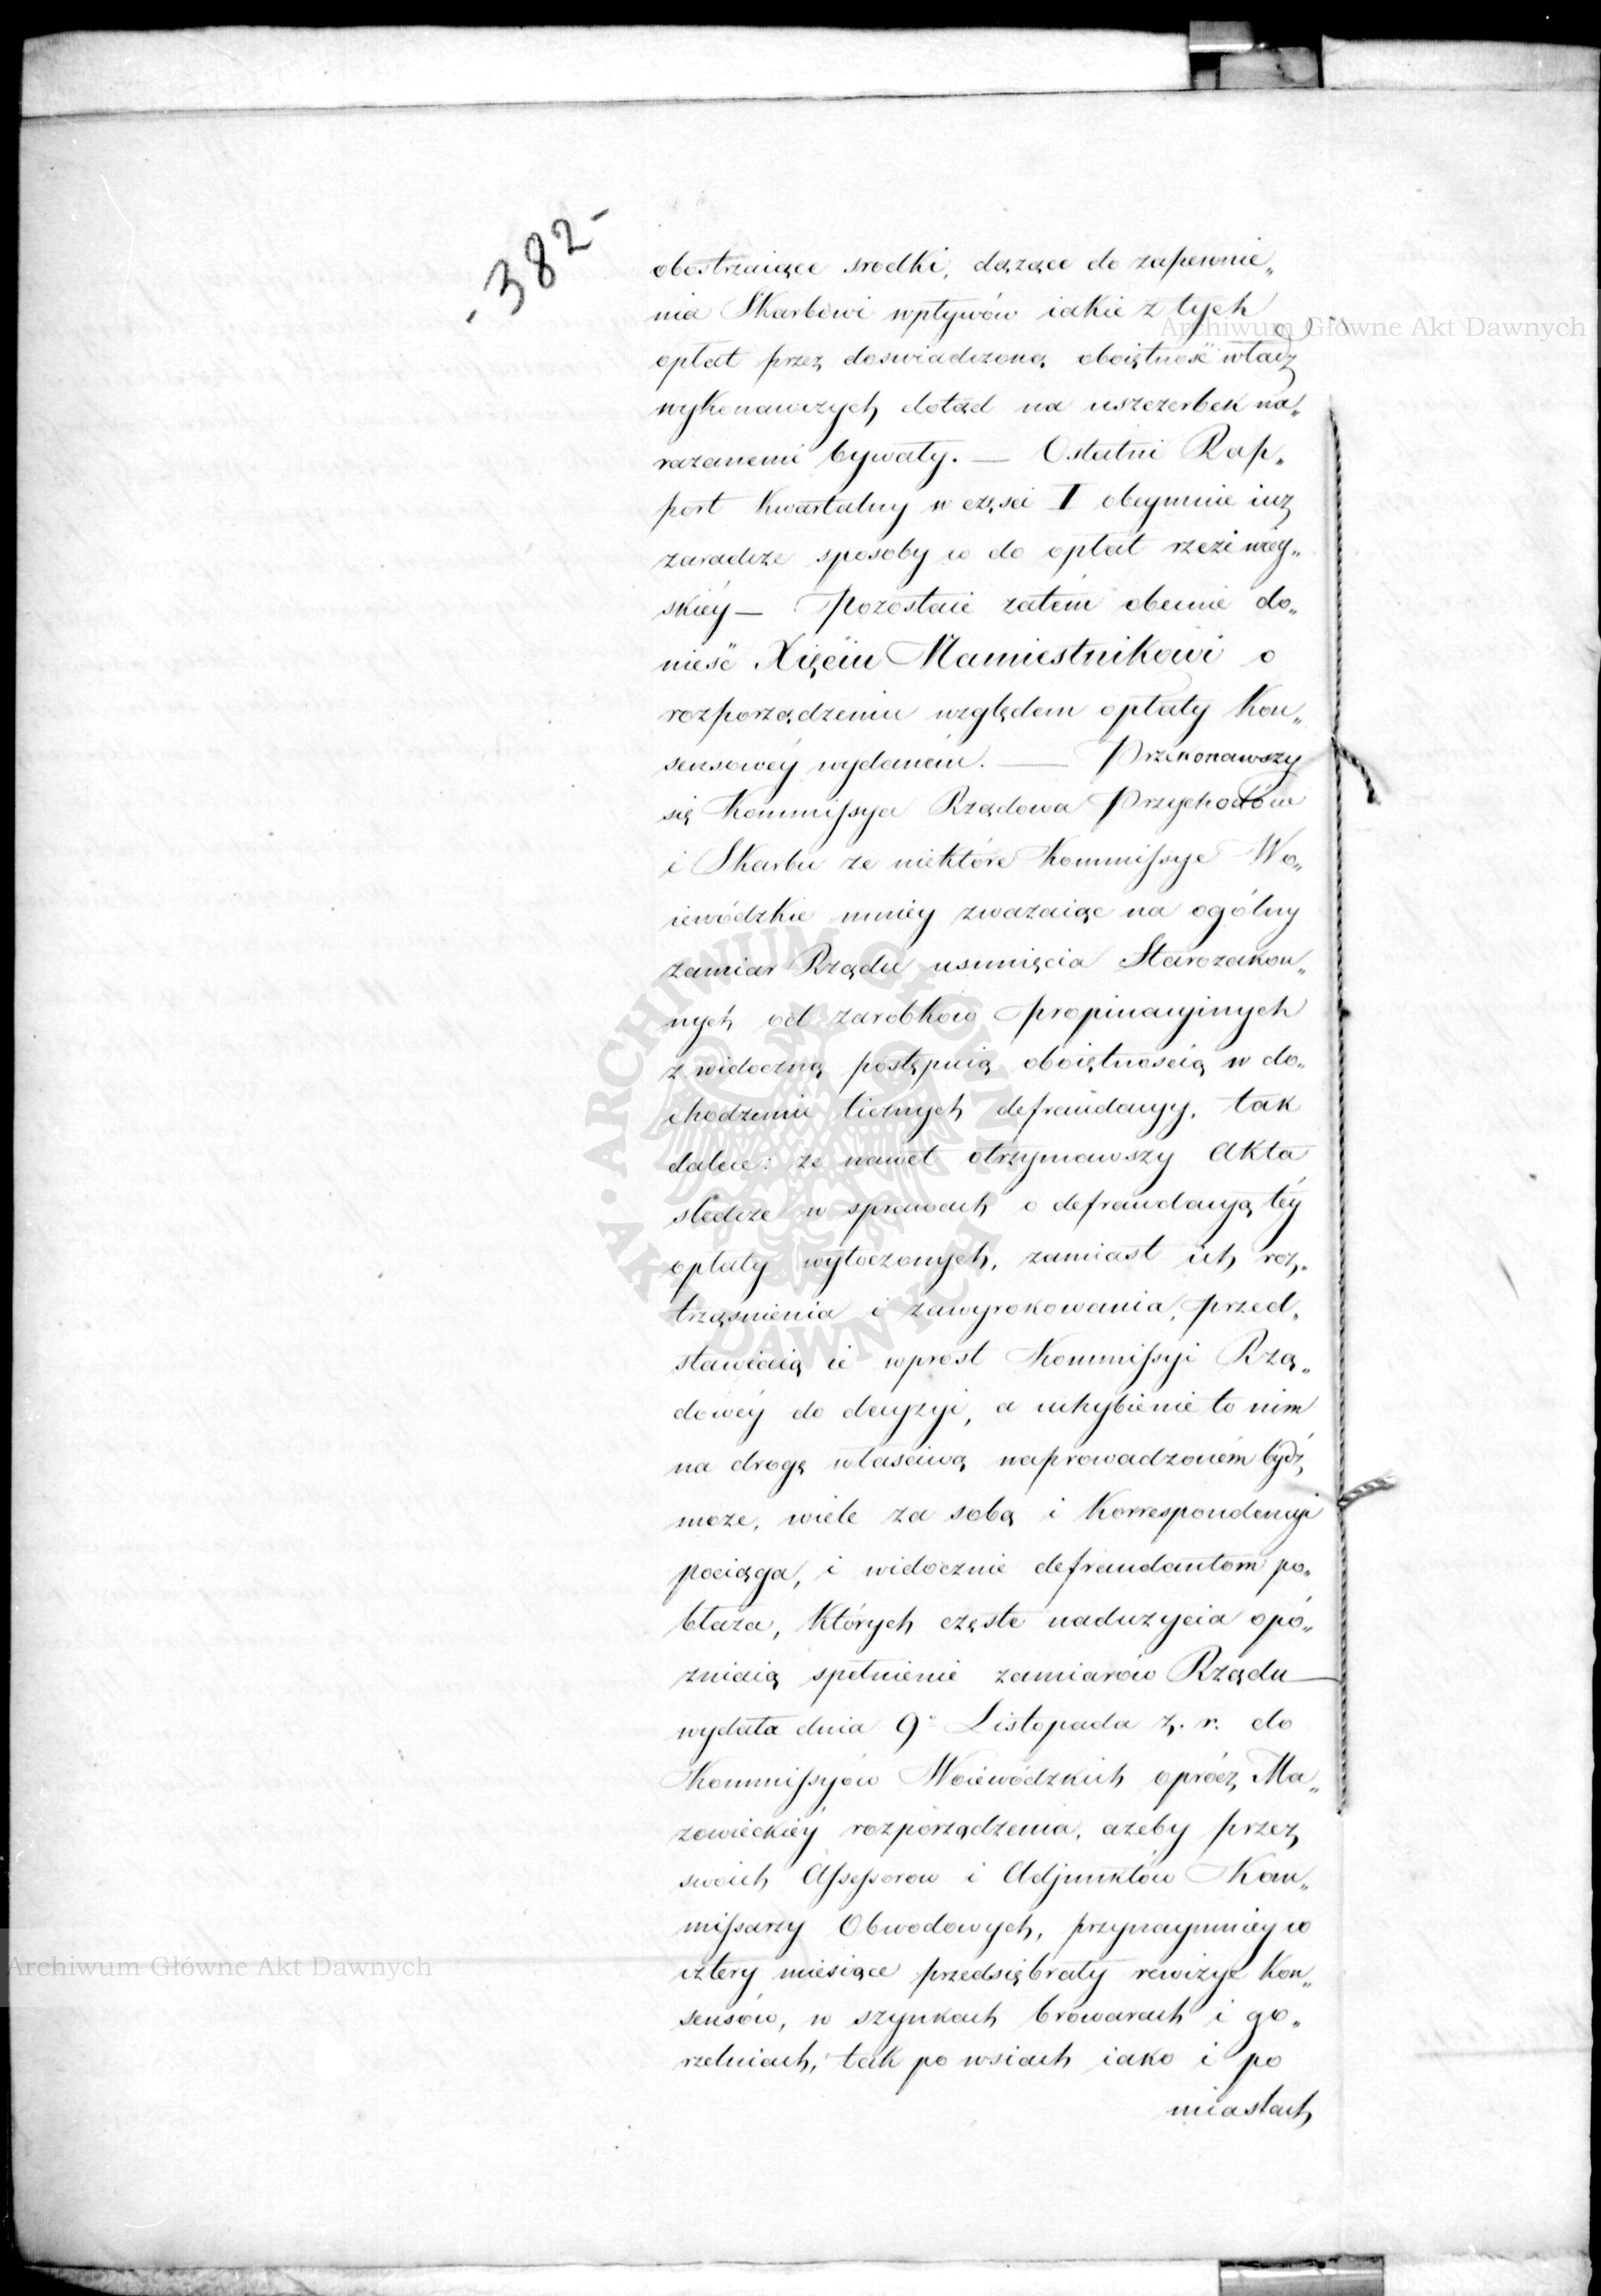 - 382 -
obostrzaiące srodki, dążące do zapewnie„
nia Skarbowi wpływów iakie z tych
opłat przez doswiadczoną oboiętność władz
wykonawczych dotąd na uszczerbek na„
razanemi bywały. — Ostatni Rap„
port kwartalny w części I obeymuie iuż
zaradcze sposoby co do opłat rzezi wiey„
skiéy — Pozostaie zatém obecnie do„
nieść Xięciu Namiestnikowi o
rozporządzeniu względem opłaty kon„
sensowéy wydaném. — Przekonawszy
się Kommissya Rządowa Przychodów
i Skarbu ze niektóre Kommissye Wo„
iewódzkie mniéy zwazaiąc na ogólny
zamiar Rządu usunięcia Starozakon„
nych od zarobków propinacyinych
z widoczną postępuią oboiętnoscią w do„
chodzeniu licznych defraudacyy, tak
dalece: ze nawet otrzymawszy Akta
sledcze w sprawach o defraudacyą téy
opłaty wytoczonych, zamiast ich roz„
trząsnienia i zawyrokowania, przed„
stawiaią ie wprost Kommissyi Rzą„
dowéy do decyzyi, a uchybienie to nim
na drogę własciwą naprowadzoném bydź
moze, wiele za sobą i korrespondencyi
pociąga, i widocznie defraudantom po„
błaza, których częste naduzycia opó„
zniaią spełnienie zamiarów Rządu —
wydała dnia 9º Listopada z. r. do
Kommissyów Woiewódzkich oprócz Ma„
zowieckiéy rozporządzenia, azeby przez
swoich Assessorow i Adjunktów Kom„
missarzy Obwodowych, przynaymniey co
cztery miesiące przedsiębrały rewizye kon„
sensów, w szynkach browarach i go„
rzelniach, tak po wsiach iako i po
miastach
Archiwum Główne Akt Dawnych
Archiwum Główne Akt Dawnych
ARCHIWUM GŁÓWNE AKT DAWNYCH